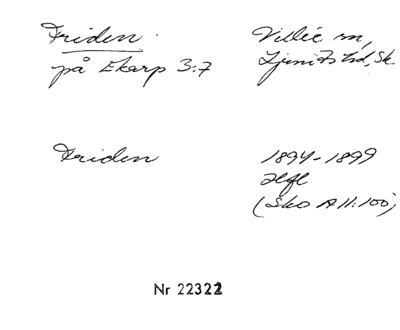 Friden
på Ekarp 3:7
Villie sn,
Ljunits hd, Sk.
Friden
1894-1899
Hfl
(Sko A II:100)
Nr 22322